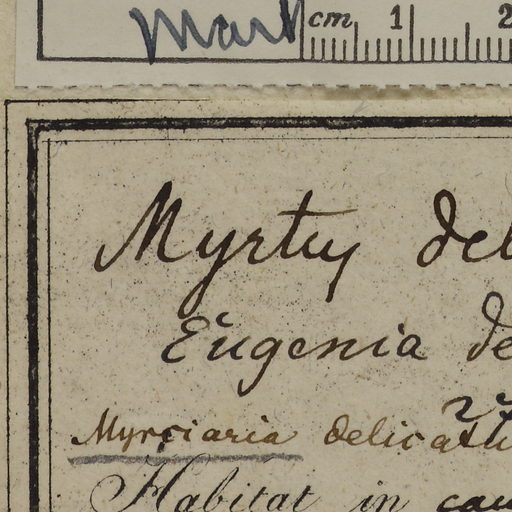 cm 1 2
Myrtus del
Eugenia de
Myrciaria delicatu
Habitat in cam